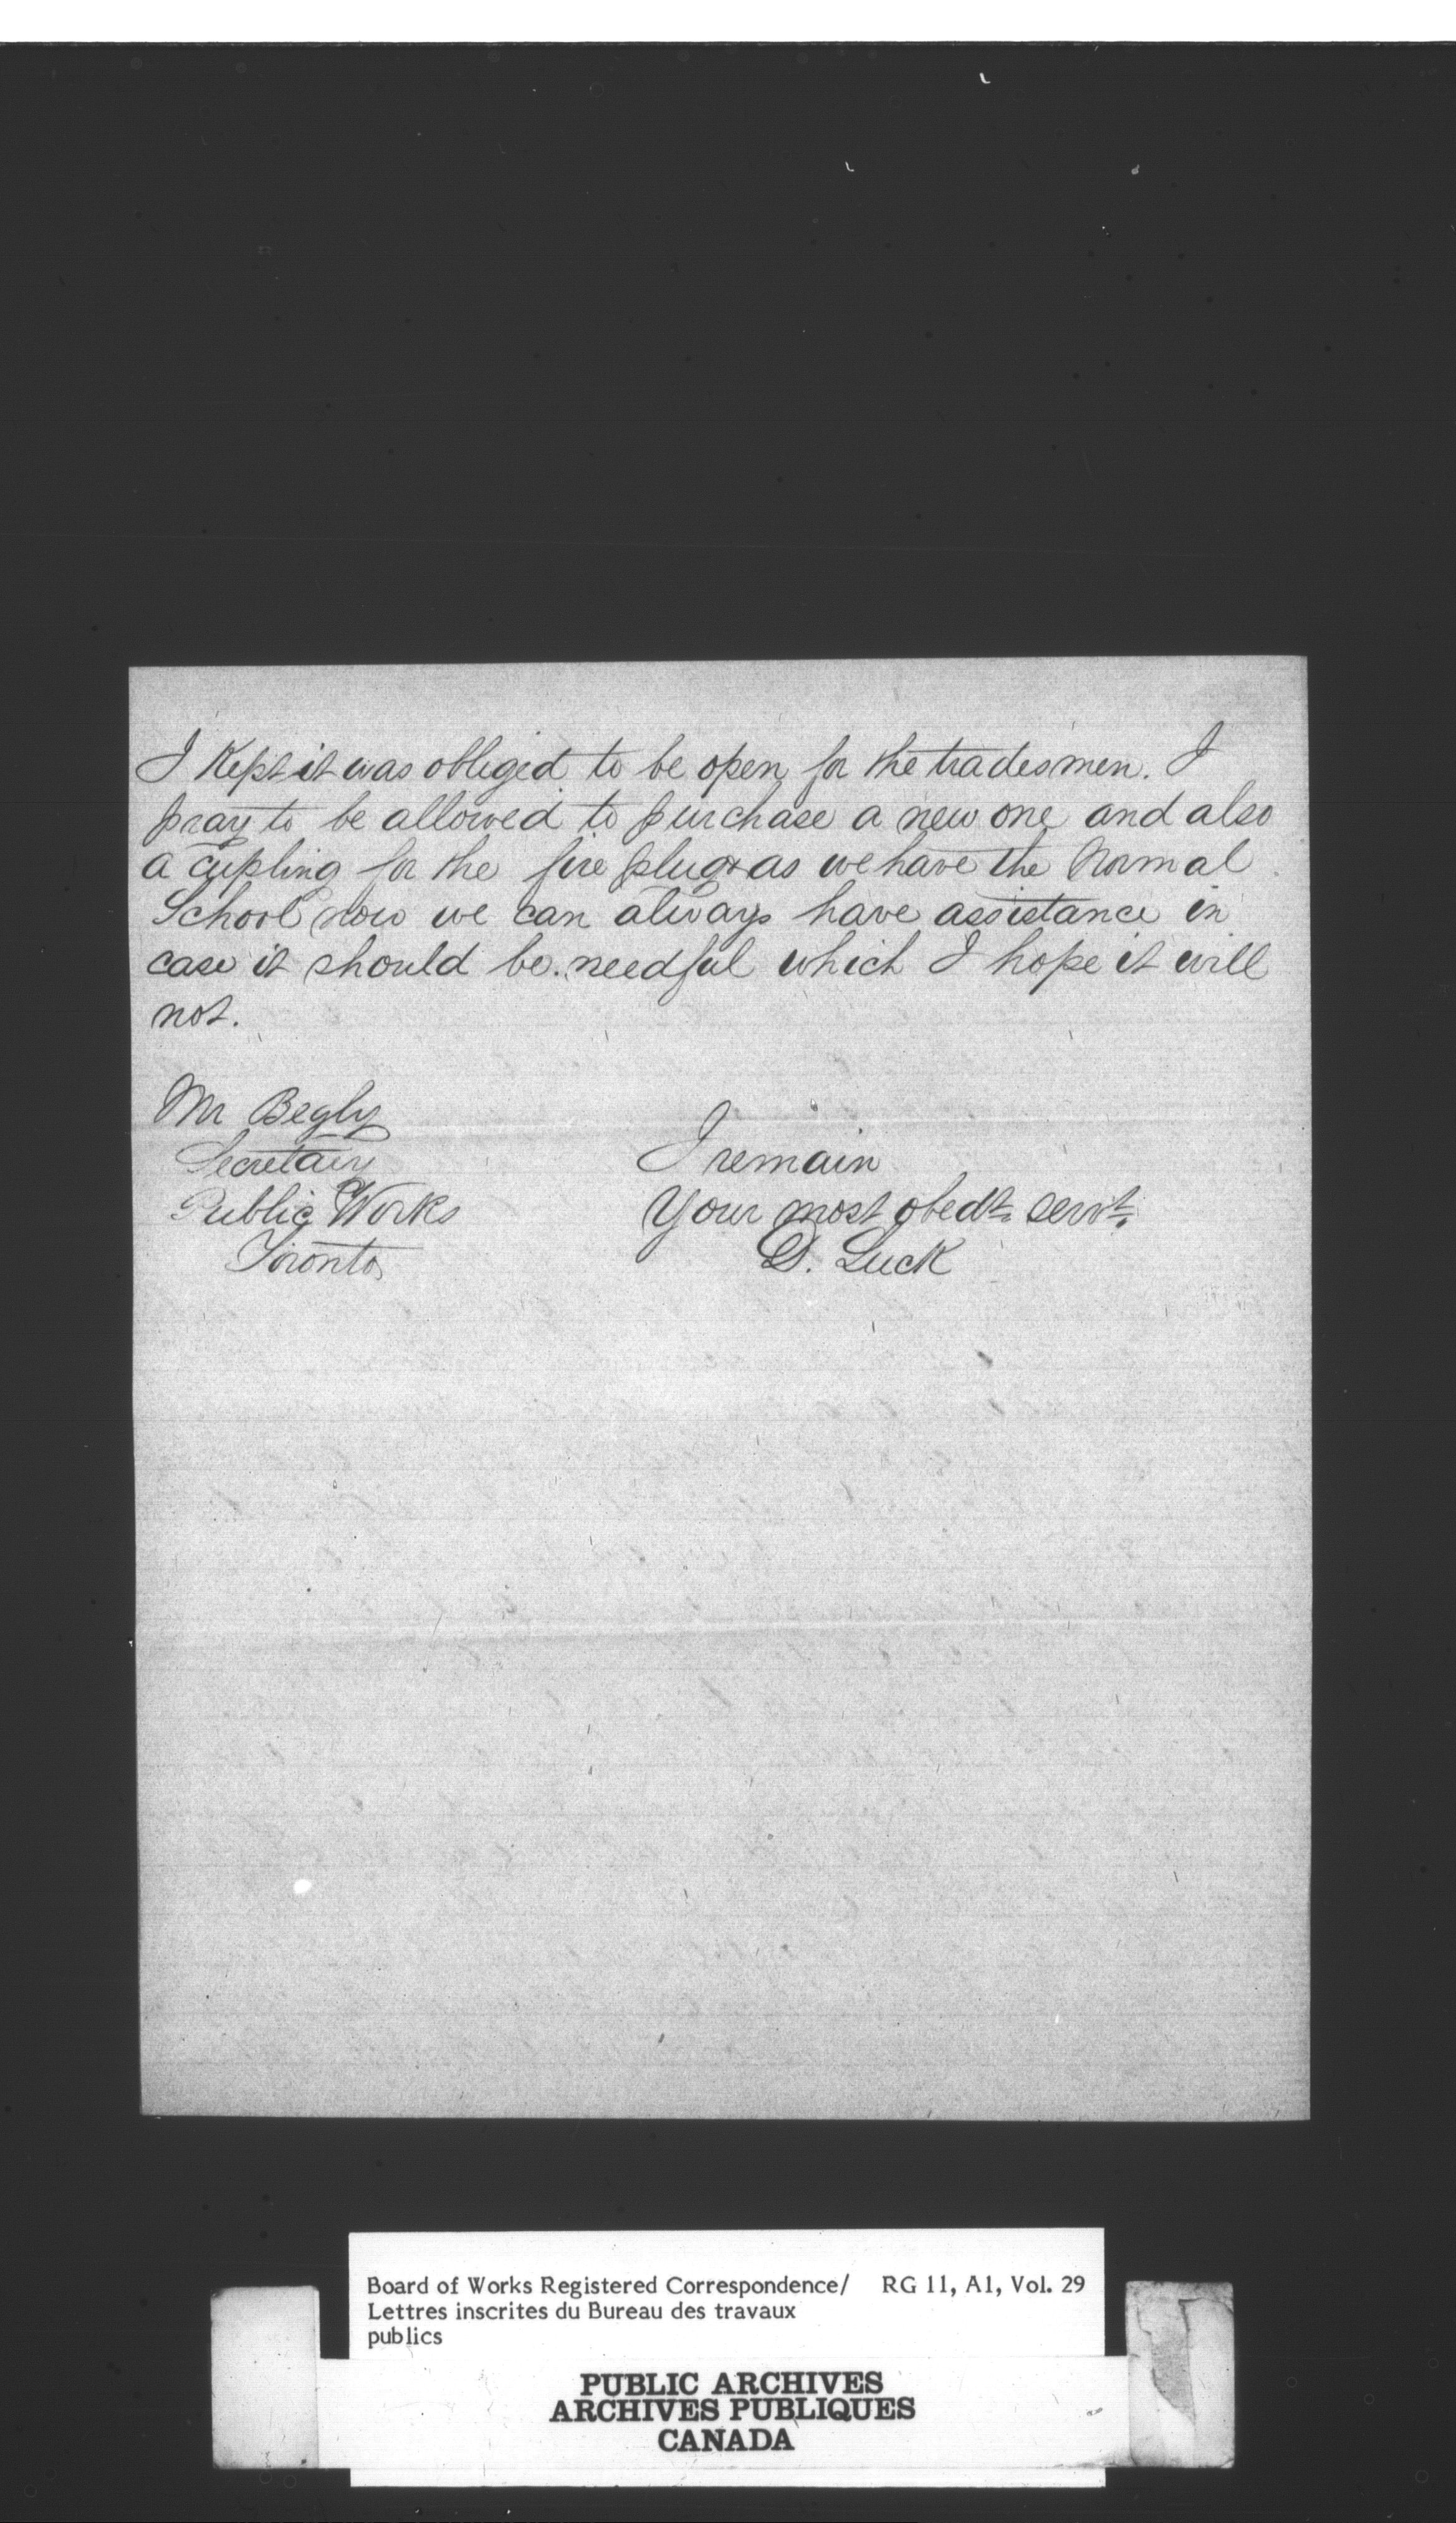 I Kept it was obliged to be open for the tradesmen. I
pray to be allowed to purchase a new one and also
a cupling for the fire plug & as we have the Normal
School now we can always have assistance in
case it should be needful which I hope it will
not.
Mr Begly
Secretary
Public Works
Toronto
I remain
Your most obedt. servt.
D. Luck
Board of Works Registered Correspondence/ RG 11, A1, Vol. 29
Lettres inscrites du Bureau des travaux
publics
PUBLIC ARCHIVES
ARCHIVES PUBLIQUES
CANADA